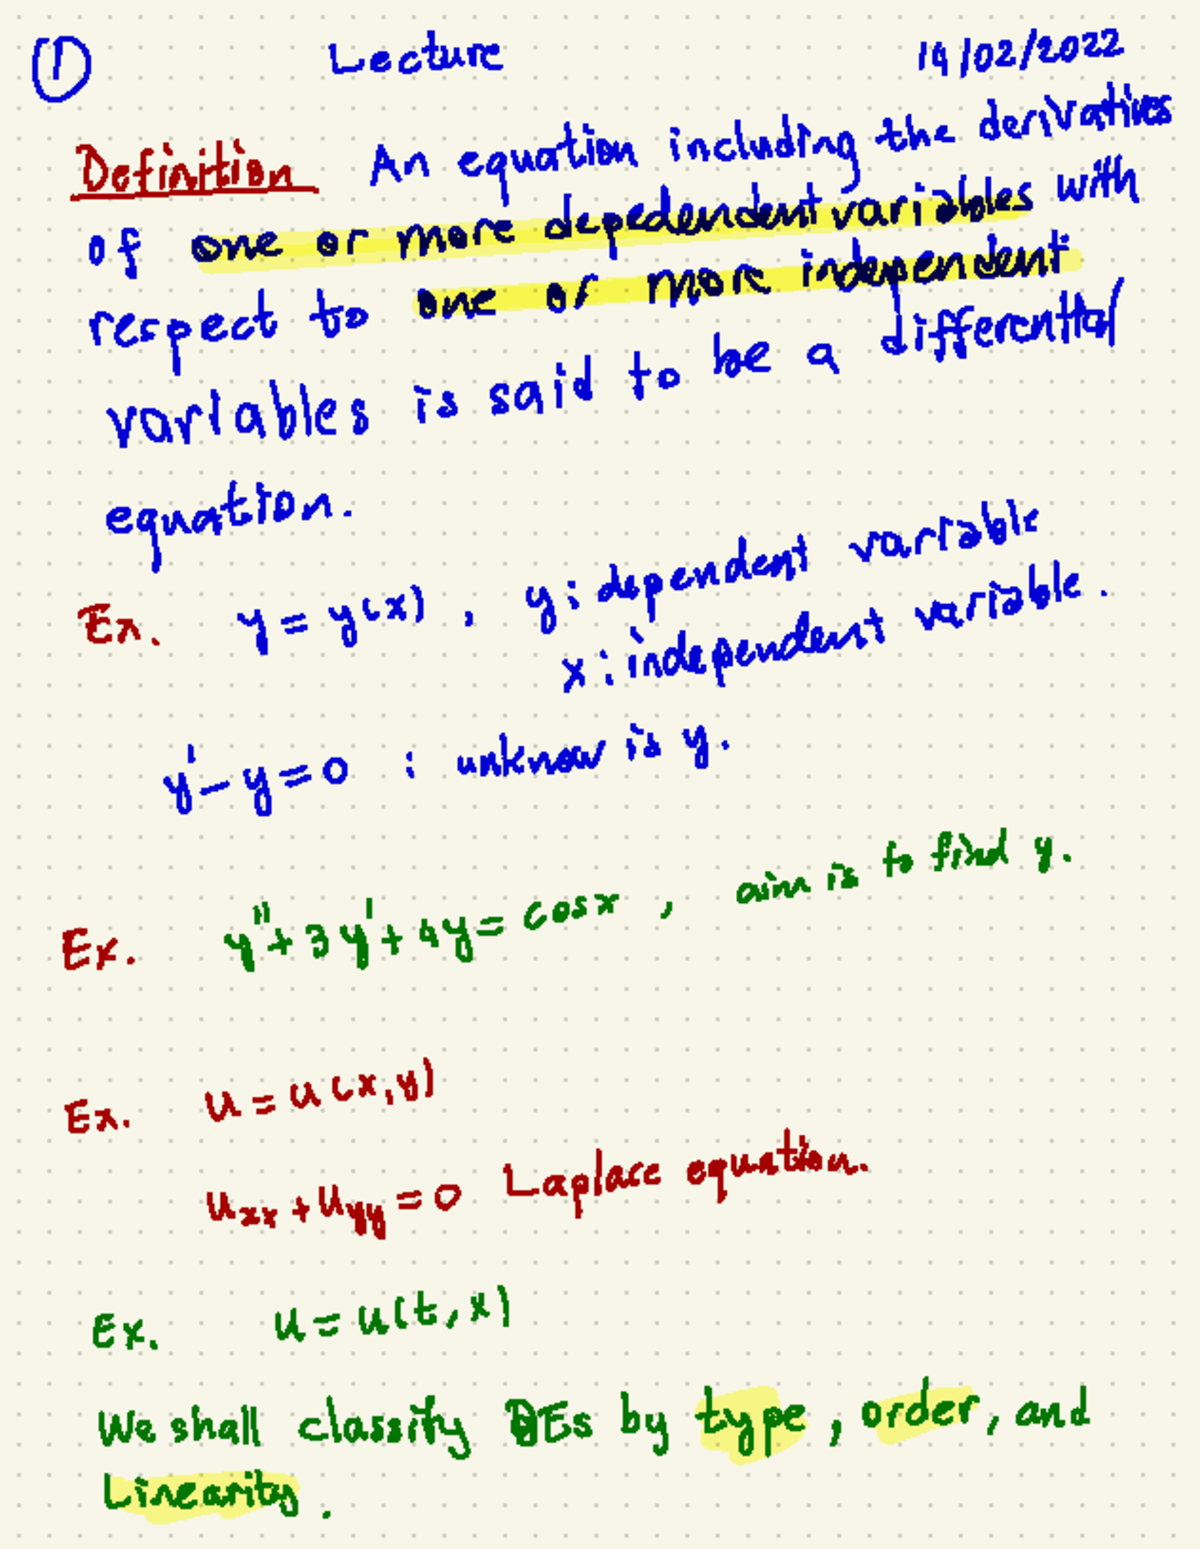 ① Lecture 14/02/2022
Definition An equation including the derivatives
of one or more depedendent variables with
respect to one or more independent
variables is said to be a differential
equation.
Ex. y = y(x) , y : dependent variable
x : independent variable.
y' - y = 0 : unknow is y.
Ex. y'' + 3y' + 4y = cosx , aim is to find y.
Ex. u = u(x,y)
uxx + uyy = 0 Laplace equation.
Ex. u = u(t,x)
We shall classify DEs by type, order, and
Linearity.